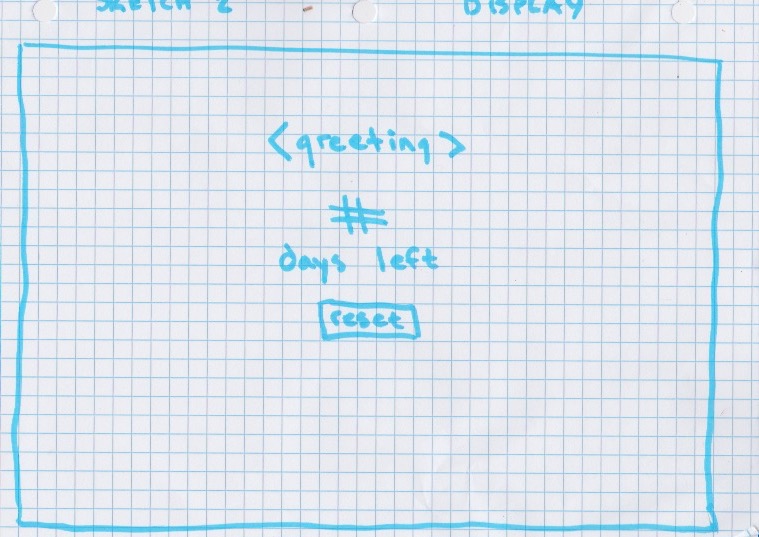 SKETCH 2 - DISPLAY
<greeting>
#
days left
reset